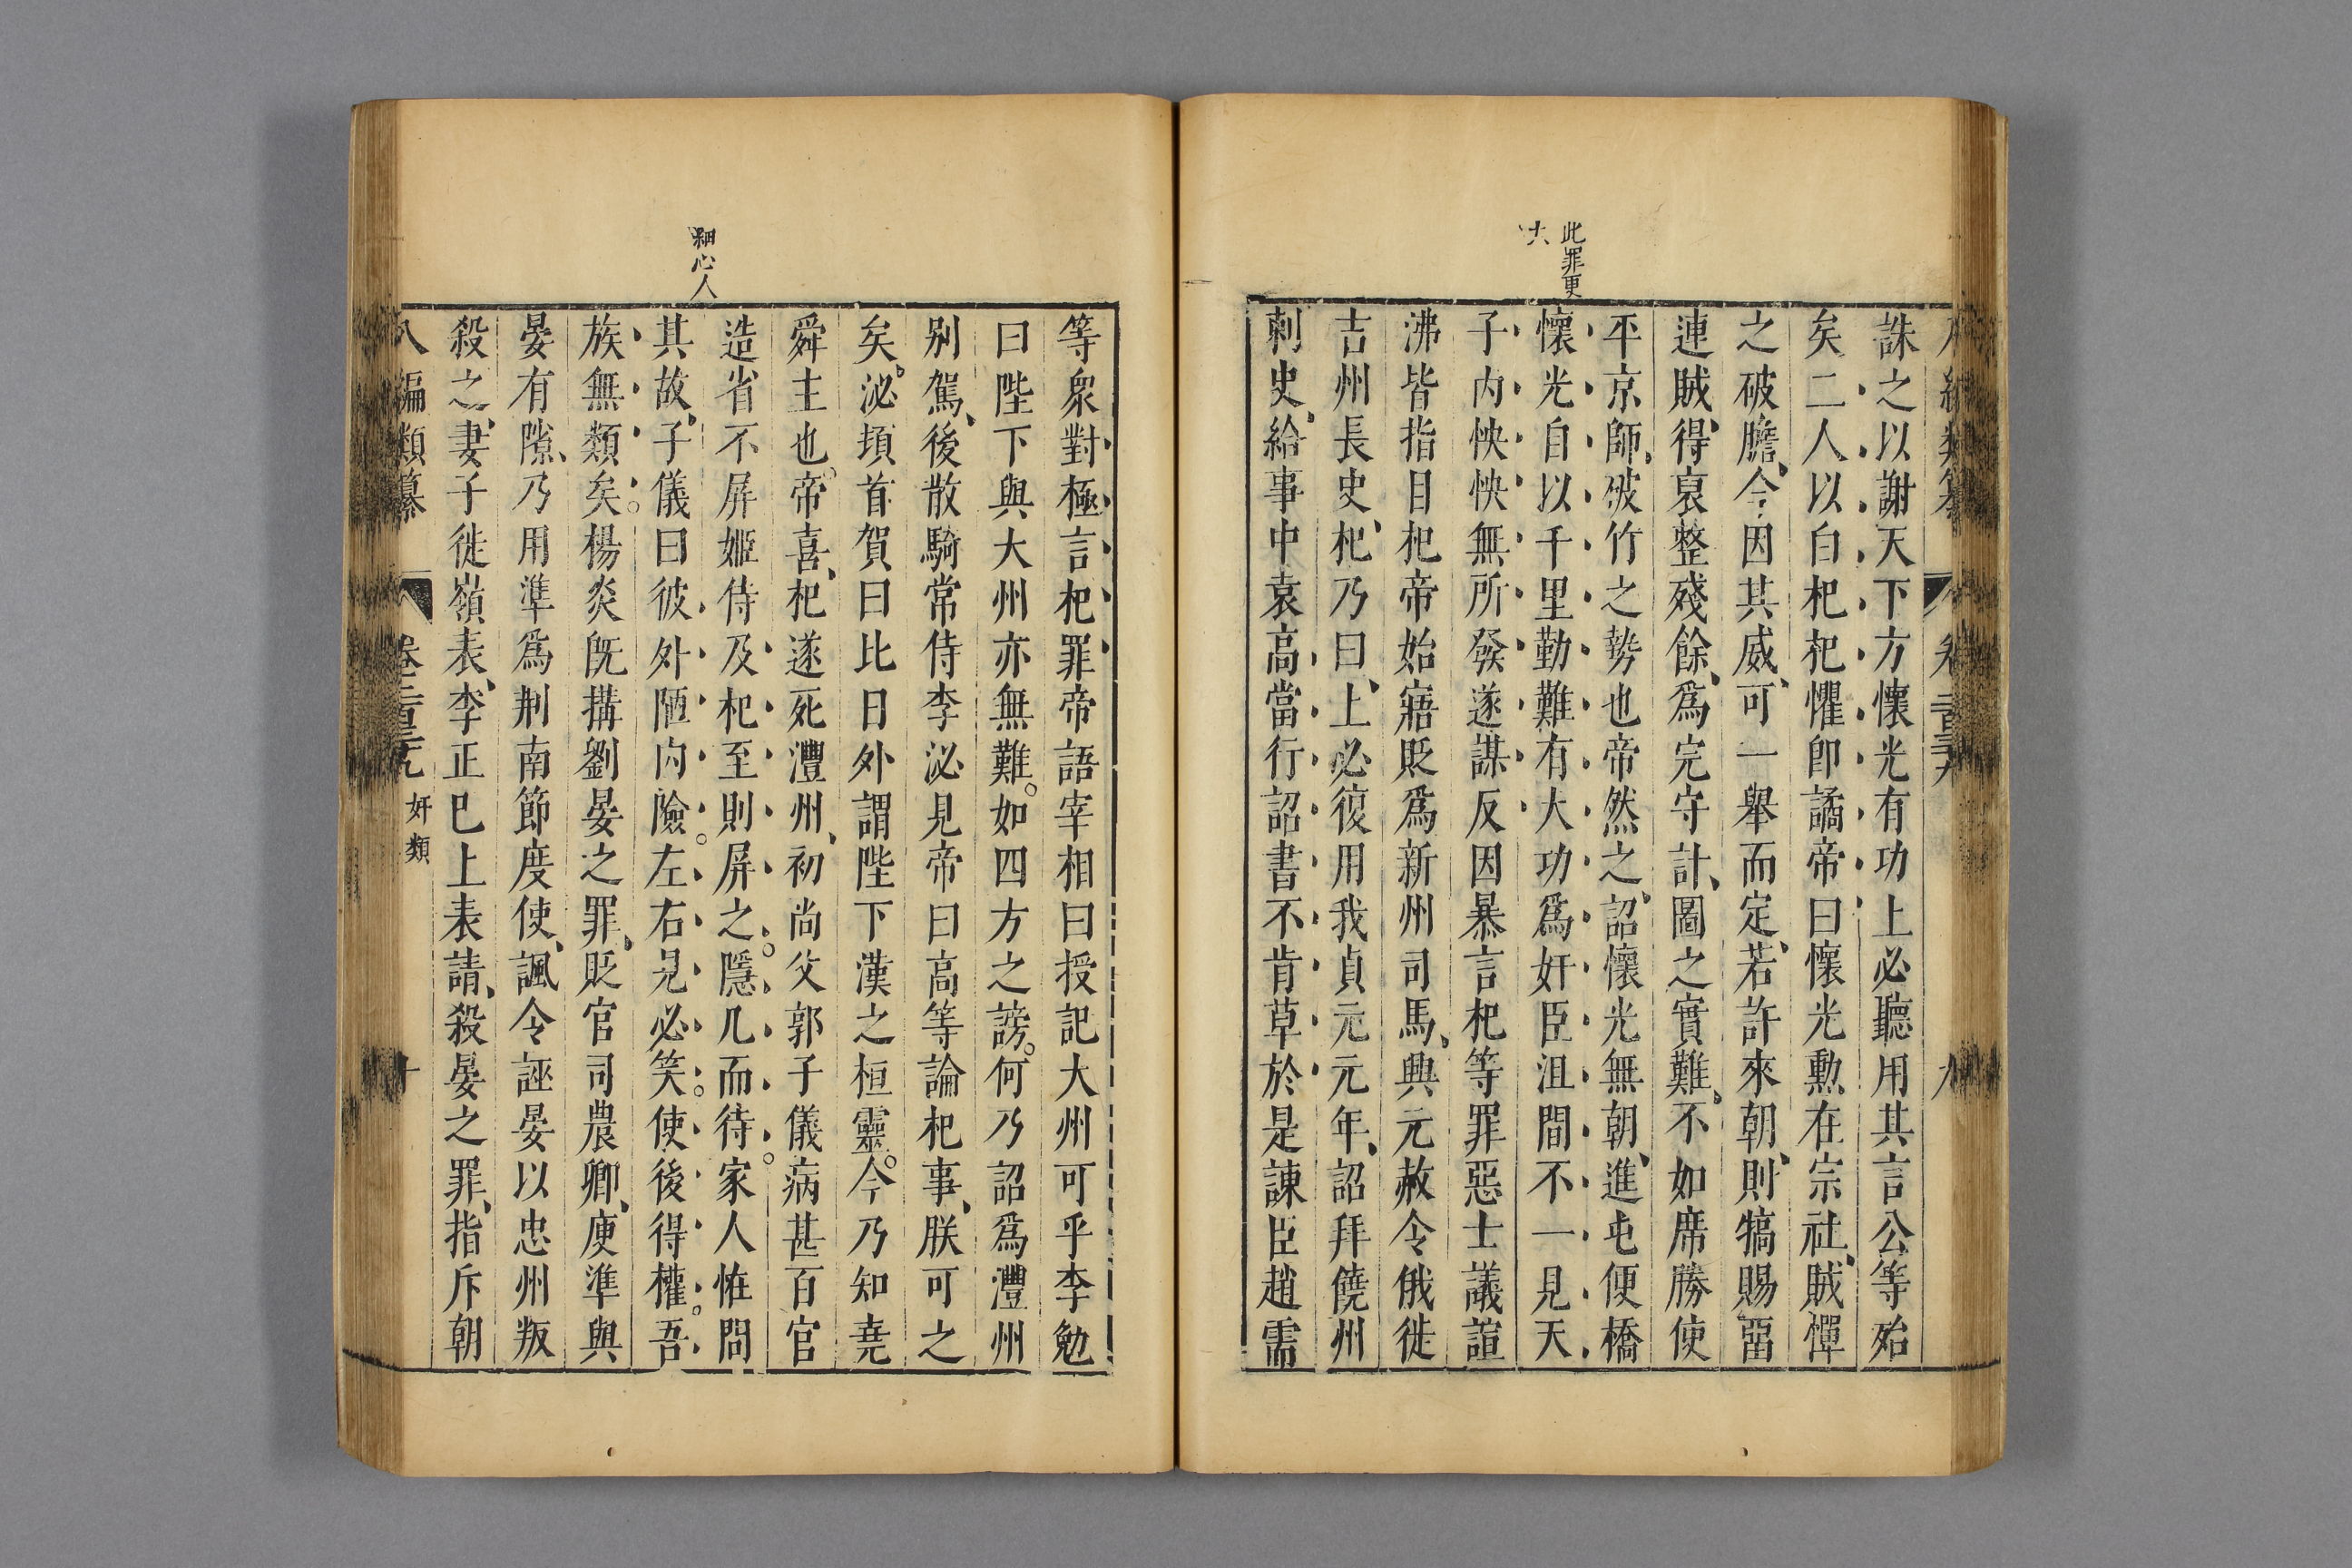 此罪更
大
誅之以謝天下方懷光有功上必聽用其言公等殆
矣二人以白杞杞懼卽譎帝曰懷光勲在宗社賊憚
之破膽今因其威可一舉而定若許來朝則犒賜畱
連賊得裒整殘餘爲完守計圖之實難不如席勝使
平京師破竹之勢也帝然之詔懷光無朝進屯便橋
懷光自以千里勤難有大功爲奸臣沮間不一見天
子內怏怏無所發遂謀反因暴言杞等罪惡士議諠
沸皆指目杞帝始寤貶爲新州司馬興元赦令俄徙
吉州長史杞乃曰上必復用我貞元元年詔拜饒州
刺史給事中袁高當行詔書不肯草於是諫臣趙需
細心人
等衆對極言杞罪帝語宰相曰授記大州可乎李勉
曰陛下與大州亦無難如四方之謗何乃詔爲灃州
別駕後散騎常侍李泌見帝曰高等論杞事朕可之
矣泌頓首賀曰比日外謂陛下漢之桓靈今乃知堯
舜主也帝喜杞遂死灃州初尚父郭子儀病甚百官
造省不屏姬侍及杞至則屏之隱几而待家人恠問
其故子儀曰彼外陋內險左右見必笑使後得權吾
族無類矣楊炎旣搆劉晏之罪貶官司農卿庾準與
晏有隙乃用準爲荆南節度使諷令誣晏以忠州叛
殺之妻子徙嶺表李正巳上表請殺晏之罪指斥朝
八編類纂 卷二百三十九 奸類 十